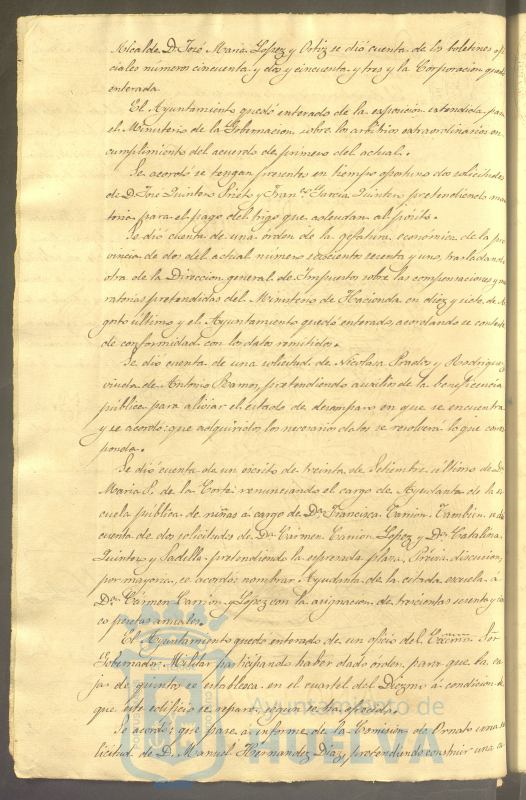 Alcalde D. José Maria Lopez y Ortiz se dió cuenta de los boletines ofi
ciales números cincuenta y dos y cincuenta y tres y la Corporacion quedó
enterada.
El Ayuntamiento quedó enterado de la exposicion estendida para
el Ministerio de la Gobernacion sobre los arbitrios extraordinarios en
cumplimiento del acuerdo de primero del actual.
Se acordó se tengan presentes en tiempo oportuno dos solicitudes
de D. José Quintero y Fran.co Garcia Quintero pretendiendo mora
toria para el pago del trigo que adeudan al pósito.
Se dió cuenta de una órden de la gefatura económica de la pro
vincia de dos del actual número seiscientos sesenta y uno, trasladando
otra de la Direccion general de Impuestos sobre las compensaciones y mo
ratorias pretendidas del Ministerio de Hacienda en diez y siete de A
gosto último y el Ayuntamiento quedó enterado, acordando se conteste
de conformidad con los datos remitidos.
Se dió cuenta de una solicitud de Nicolasa Prados y Rodriguez
viuda de Antonio Ramos, pretendiendo auxilios de la beneficencia
pública para aliviar el estado de desamparo en que se encuentra
y se acordó: que adquiridos los necesarios datos se resolverá lo que corres
ponda.
Se dió cuenta de un escrito de treinta de Setiembre último de Da
Maria S. de la Corte renunciando el cargo de Ayudanta de la es
cuela pública de niñas á cargo de Da Francisca Carrion. Tambien se dió
cuenta de dos solicitudes de Da Cármen Carrion Lopez y Da Catalina
Quintero y Padilla pretendiendo la espresada plaza. Prévia discusion,
por mayoria, se acordó: nombrar Ayudanta de la citada escuela á
Da Cármen Carrion y Lopez con la asignacion de trescientas sesenta y cin
co pesetas anuales.
El Ayuntamiento quedó enterado de un oficio del Excmo. Sor
Gobernador Militar participando haber dado orden para que la ca
ja de quintos se establezca en el cuartel del Diezmo á condicion de
que este edificio se repare, segun se ha ofrecido.
Se acordó: que pase á informe de la Comision de Ornato una so
licitud de D. Manuel Hernandez Diaz, pretendiendo construir una ca
Ayuntamiento de
HUELVA